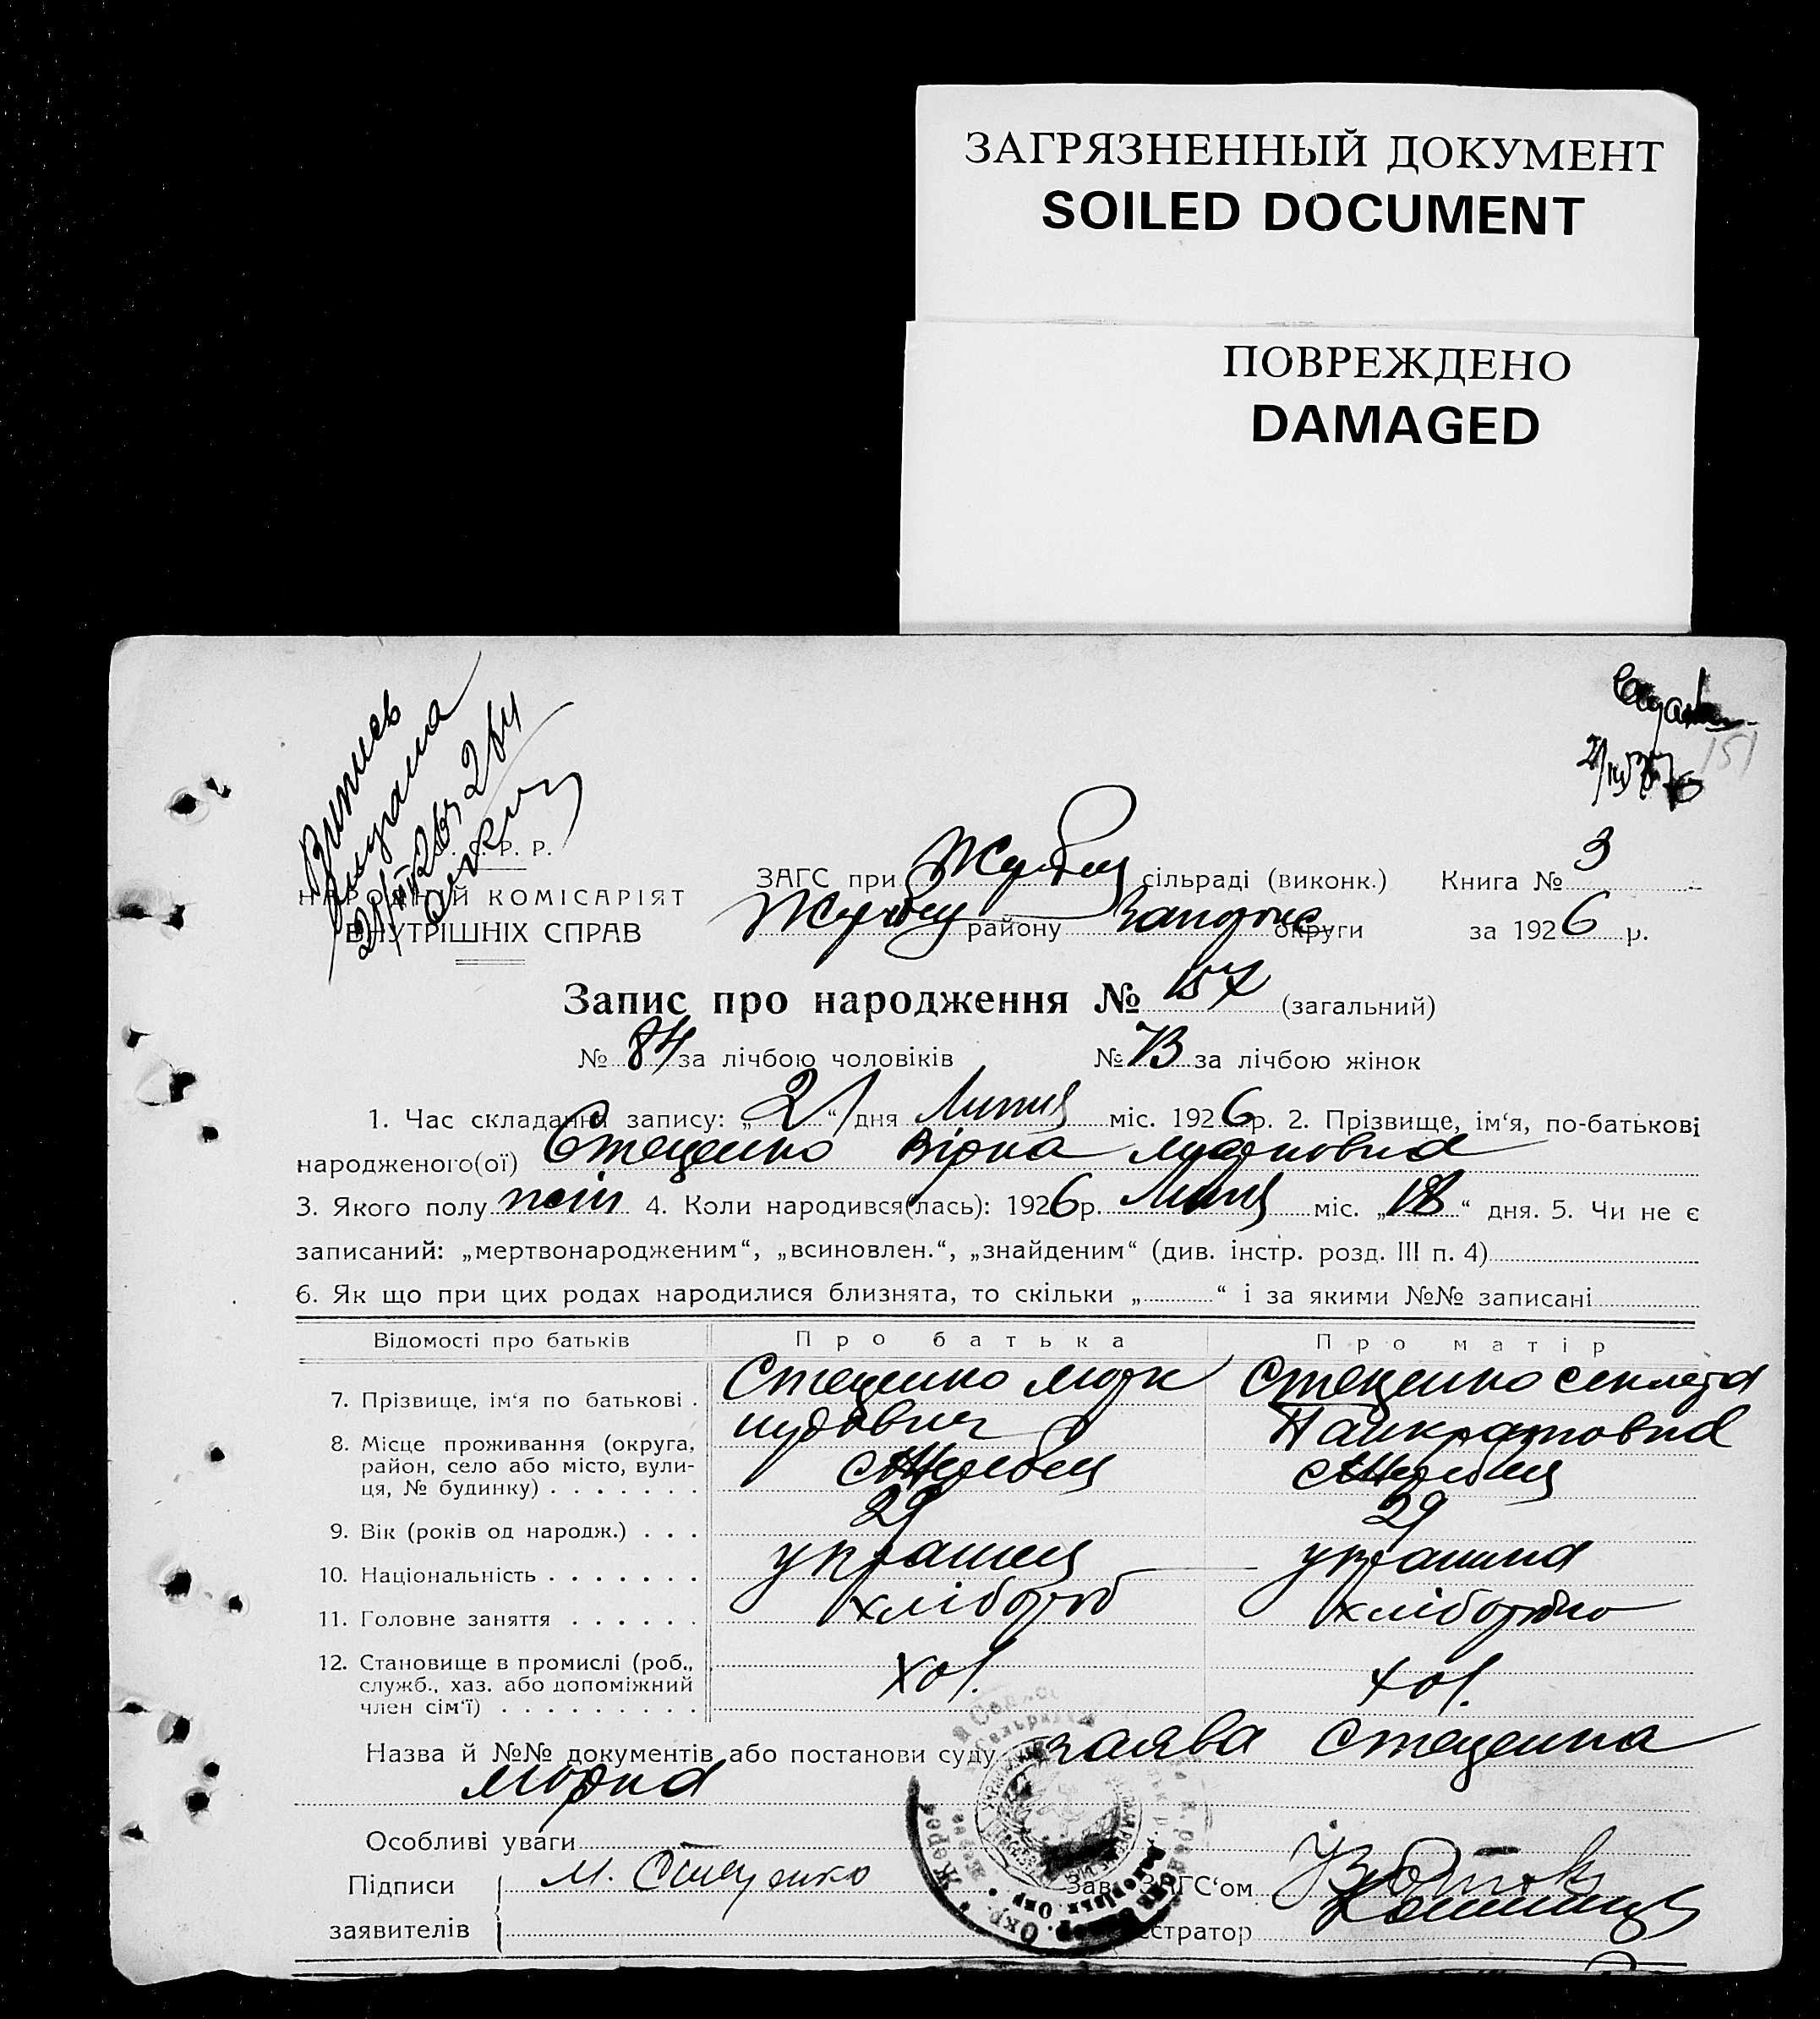 ЗАГРЯЗНЕННЫЙ ДОКУМЕНТ
SOILED DOCUMENT
ПОВРЕЖДЕНО
DAMAGED
151
Витяг
С. Р. Р.
НАРОДНІЙ КОМІСАРІЯТ
ВНУТРІШНІХ СПРАВ
ЗАГС при Жереб сільраді (виконк.) Книга № 3
Жереб району Запоріж округи за 1926 р.
Запис про народження № 157 (загальний)
№ 84 за лічбою чоловіків № 73 за лічбою жінок
1. Час складання запису: „21“ дня Липня міс. 1926 р. 2. Прізвище, ім'я, по-батькові
народженого(ої) Стеценко Вірка Марковна
3. Якого полу жін 4. Коли народився(лась): 1926 р. Липня міс. „18“ дня. 5. Чи не є
записаний: „мертвонародженим“, „всиновлен.“, „знайденим“ (див. інстр. розд. III п. 4)
6. Як що при цих родах народилися близнята, то скільки „ “ і за якими №№ записані
Відомості про батьків Про батька Про матір
7. Прізвище, ім'я по батькові . Стеценко Марк Стеценко Секлета
Панкратовна
8. Місце проживання (округа,
район, село або місто, вули-
ця, № будинку) . . . . . . . с Жеребец с Жеребец
9. Вік (років од народж.) . . . 29 29
10. Національність . . . . . . . українец українка
11. Головне заняття . . . . . . хлібороб хліборобка
12. Становище в промислі (роб.,
служб., хаз. або допоміжний
член сім'ї) . . . . . . . . . хоз. хоз.
Назва й №№ документів або постанови суду заява Стеценка
Марка
Особливі уваги
Підписи М. Стеценко Зав. ЗАГС'ом
заявителів стратор